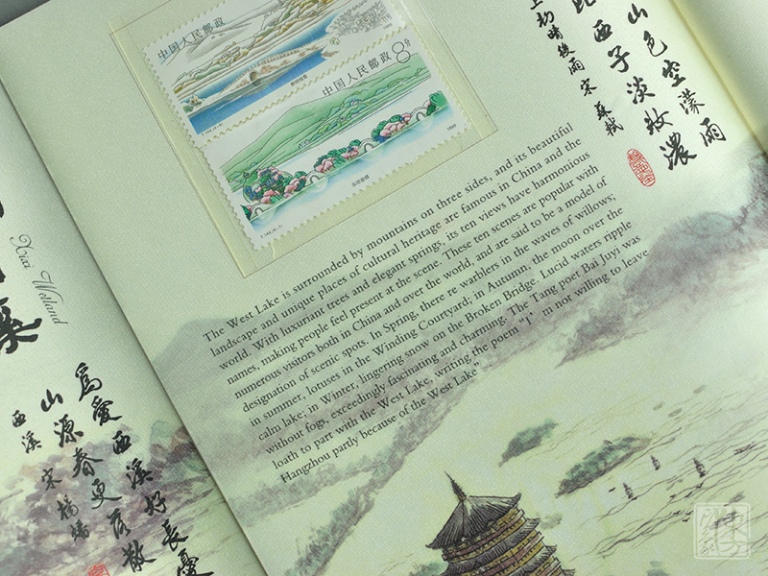 中国人民邮政
中国人民邮政 8分
The West Lake is surrounded by mountains on three sides, and its beautiful
landscape and unique places of cultural heritage are famous in China and the
world. With luxuriant trees and elegant springs, its ten views have harmonious
names, making people feel present at the scene. These ten scenes are popular with
numerous visitors both in China and over the world, and are said to be a model of
designation of scenic spots. In Spring, there re warblers in the waves of willows;
in summer, lotuses in the Winding Courtyard; in Autumn, the moon over the
calm lake; in Winter, lingering snow on the Broken Bridge. Lucid waters ripple
without fogs, exceedingly fascinating and charming. The Tang poet Bai Juyi was
loath to part with the West Lake, writing the poem “I’m not willing to leave
Hangzhou partly because of the West Lake”
山色空濛雨
西子淡妆濃
上初晴後雨 宋 蘇軾
Xixi Wetland
為愛西溪好長憂
山源春更落散
西溪 宋 楊蟠